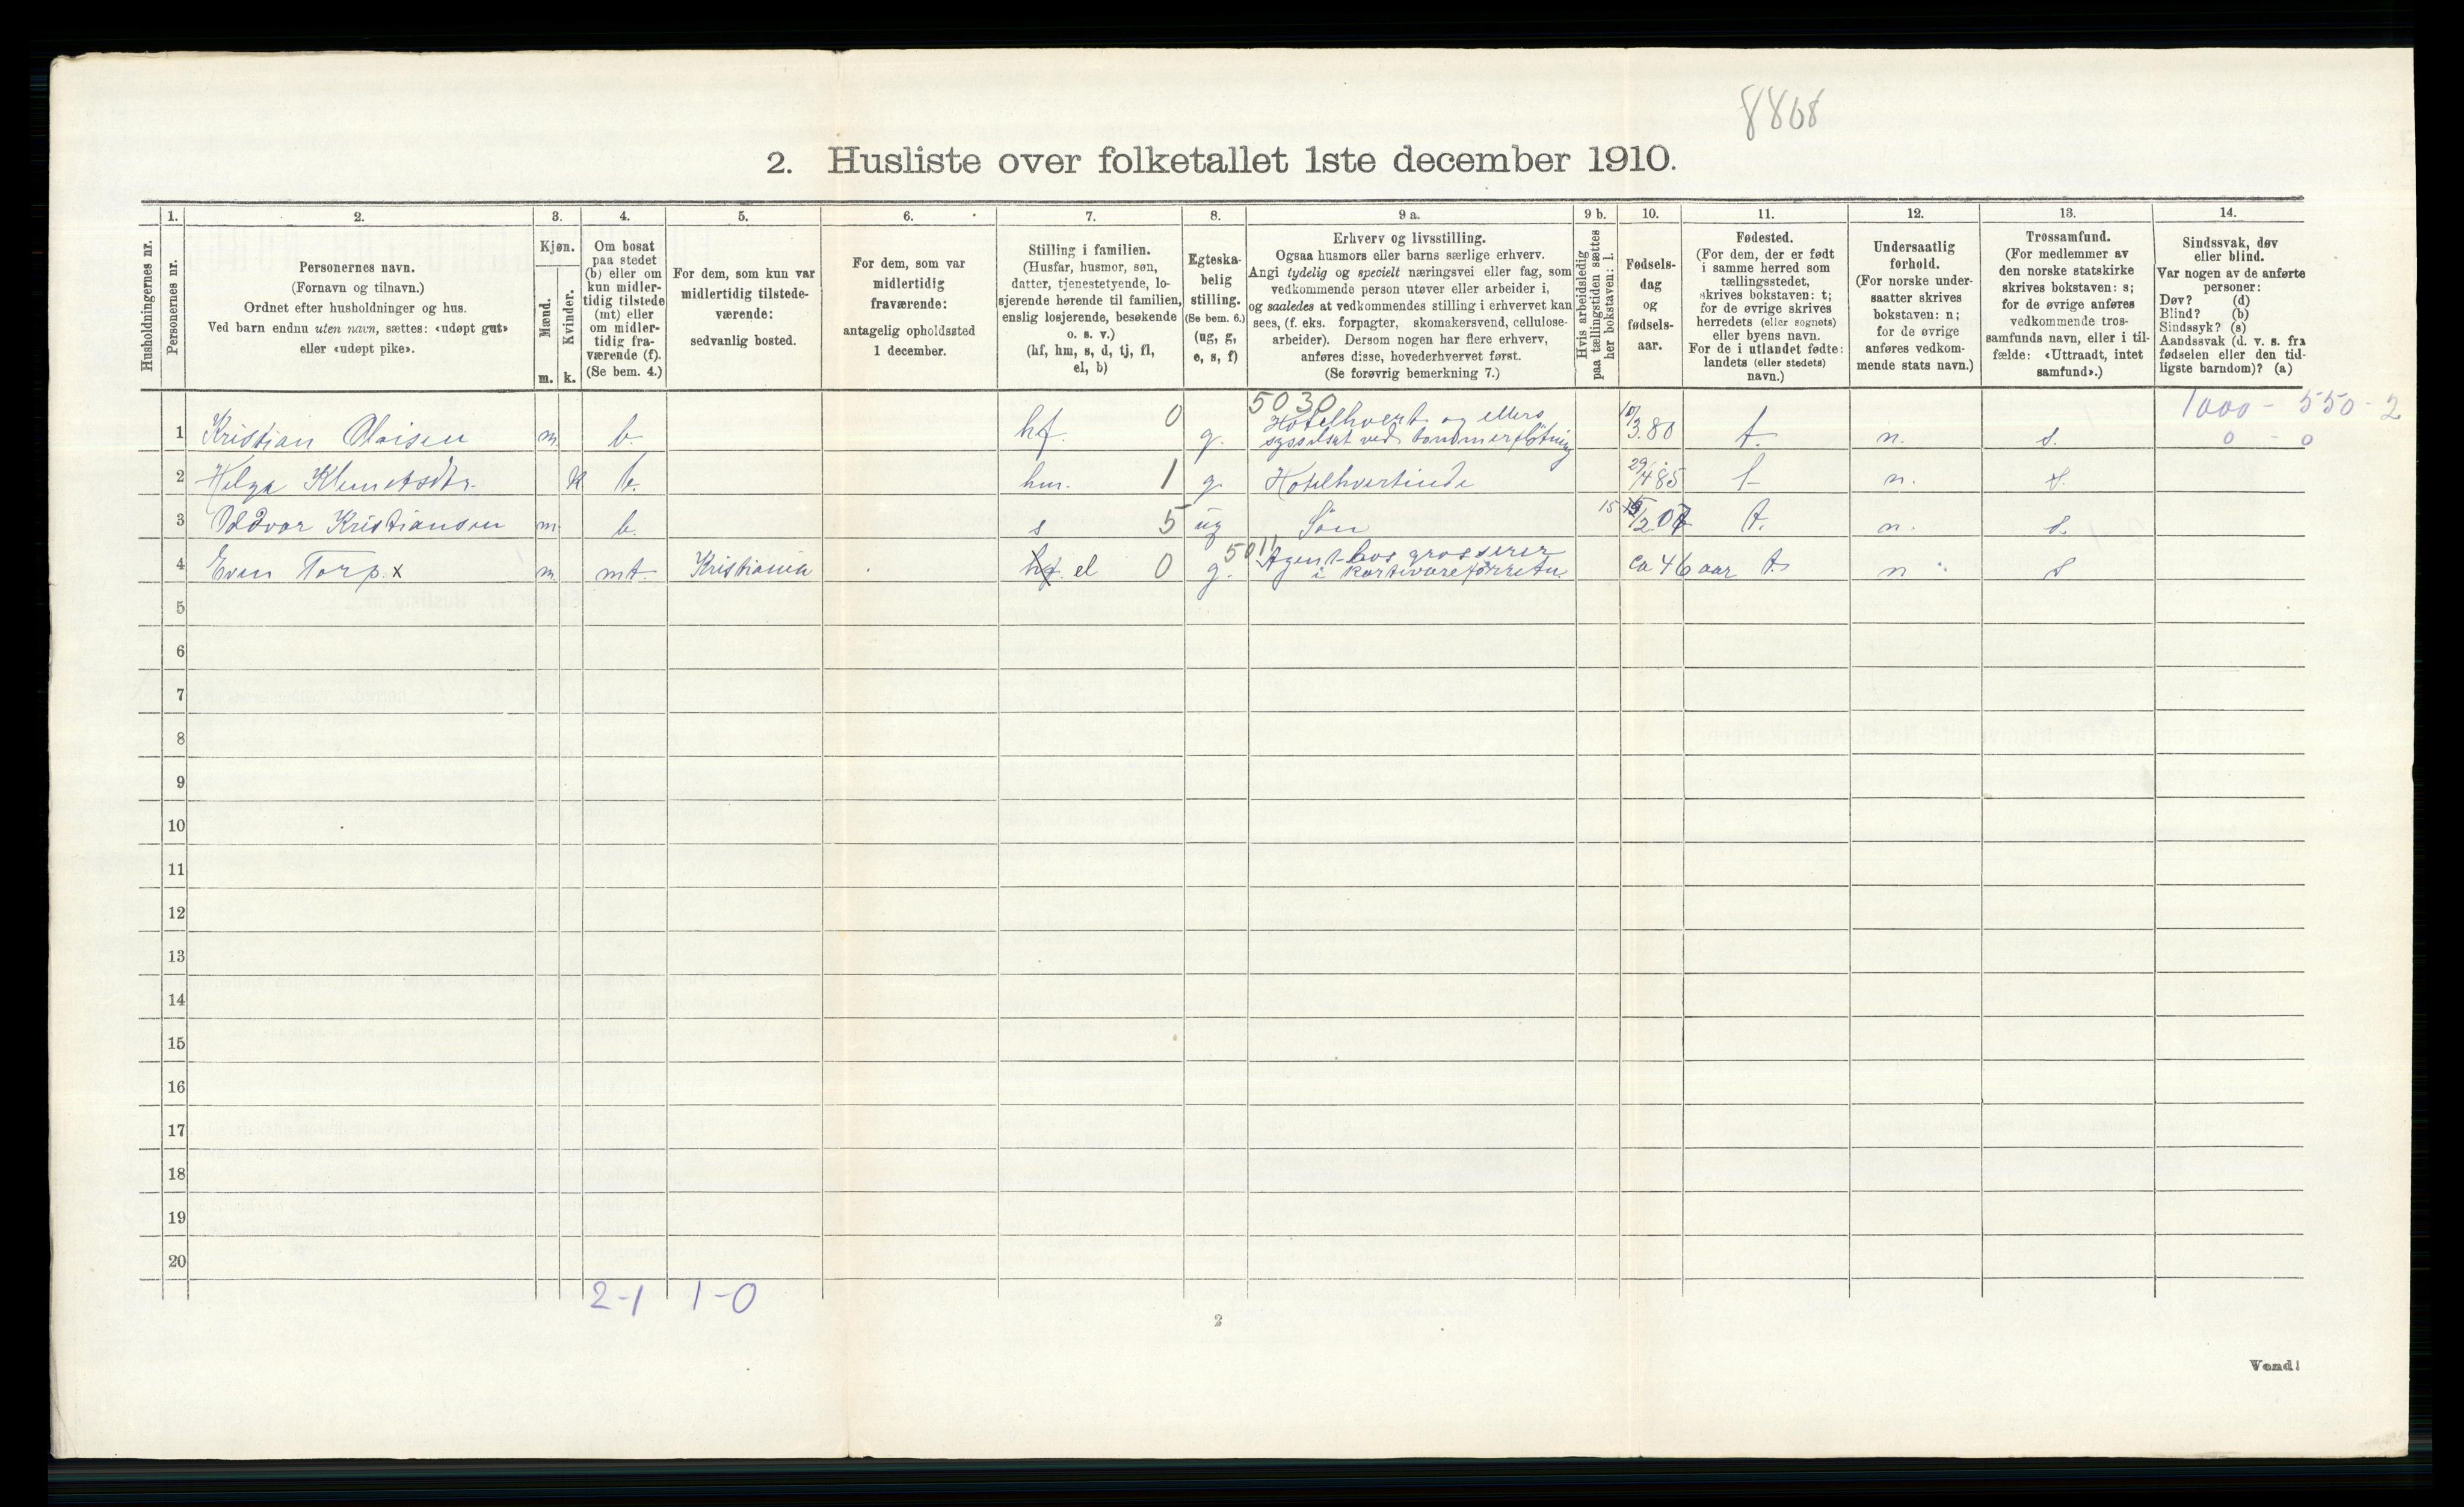 8868
2. Husliste over folketallet 1ste december 1910.
Husholdningernes nr.
1.
Personernes nr.
2.
Personernes navn.
(Fornavn og tilnavn.)
Ordnet efter husholdninger og hus.
Ved barn endnu uten navn, sættes: «udøpt gut»
eller «udøpt pike».
3.
Kjøn.
Mænd.
m.
Kvinder.
k.
4.
Om bosat
paa stedet
(b) eller om
kun midler-
tidig tilstede
(mt) eller
om midler-
tidig fra-
værende (f).
(Se bem. 4.)
5.
For dem, som kun var
midlertidig tilstede-
værende:
sedvanlig bosted.
6.
For dem, som var
midlertidig
fraværende:
antagelig opholdssted
1 december.
7.
Stilling i familien.
(Husfar, husmor, søn,
datter, tjenestetyende, lo-
sjerende hørende til familien,
enslig losjerende, besøkende
o. s. v.)
(hf, hm, s, d, tj, fl,
el, b)
8.
Egteska-
belig
stilling.
(Se bem. 6.)
(ug, g,
e, s, f)
9 a.
Erhverv og livsstilling.
Ogsaa husmors eller barns særlige erhverv.
Angi tydelig og specielt næringsvei eller fag, som
vedkommende person utøver eller arbeider i,
og saaledes at vedkommendes stilling i erhvervet kan
sees, (f. eks. forpagter, skomakersvend, cellulose-
arbeider). Dersom nogen har flere erhverv,
anføres disse, hovederhvervet først.
(Se forøvrig bemerkning 7.)
9 b.
Hvis arbeidsledig
paa tællingstiden sættes
her bokstaven: l.
10.
Fødsels-
dag
og
fødsels-
aar.
11.
Fødested.
(For dem, der er født
i samme herred som
tællingsstedet,
skrives bokstaven: t;
for de øvrige skrives
herredets (eller sognets)
eller byens navn.
For de i utlandet fødte:
landets (eller stedets)
navn.)
12.
Undersaatlig
forhold.
(For norske under-
saatter skrives
bokstaven: n;
for de øvrige
anføres vedkom-
mende stats navn.)
13.
Trossamfund.
(For medlemmer av
den norske statskirke
skrives bokstaven: s;
for de øvrige anføres
vedkommende tros-
samfunds navn, eller i til-
fælde: «Uttraadt, intet
samfund».)
14.
Sindssvak, døv
eller blind.
Var nogen av de anførte
personer:
Døv? (d)
Blind? (b)
Sindssyk? (s)
Aandssvak (d. v. s. fra
fødselen eller den tid-
ligste barndom)? (a)
5030 1000 - 550 - 2
1 Kristian Olaisen m. b. hf. 0 g. Hotelhvert og ellers
sysselsat ved tømmerfløtning 10/3.80 t. n. s. 0 - 0
2 Helga Klemetsdtr. k b. hm. 1 g. Hotelhvertinde 29/4 85 t n. s.
3 Oddvar Kristiansen m. b. s 5 ug Søn 15 15/2.07 t. n. s.
4 Even Torp. x m. mt. Kristiania hf. el 0 g. 5011 Agent hos grosserer
i kortevareforretn. ca 46 aar t. n s
5
6
7
8
9
10
11
12
13
14
15
16
17
18
19
20
2-1 1-0
2
Vend!